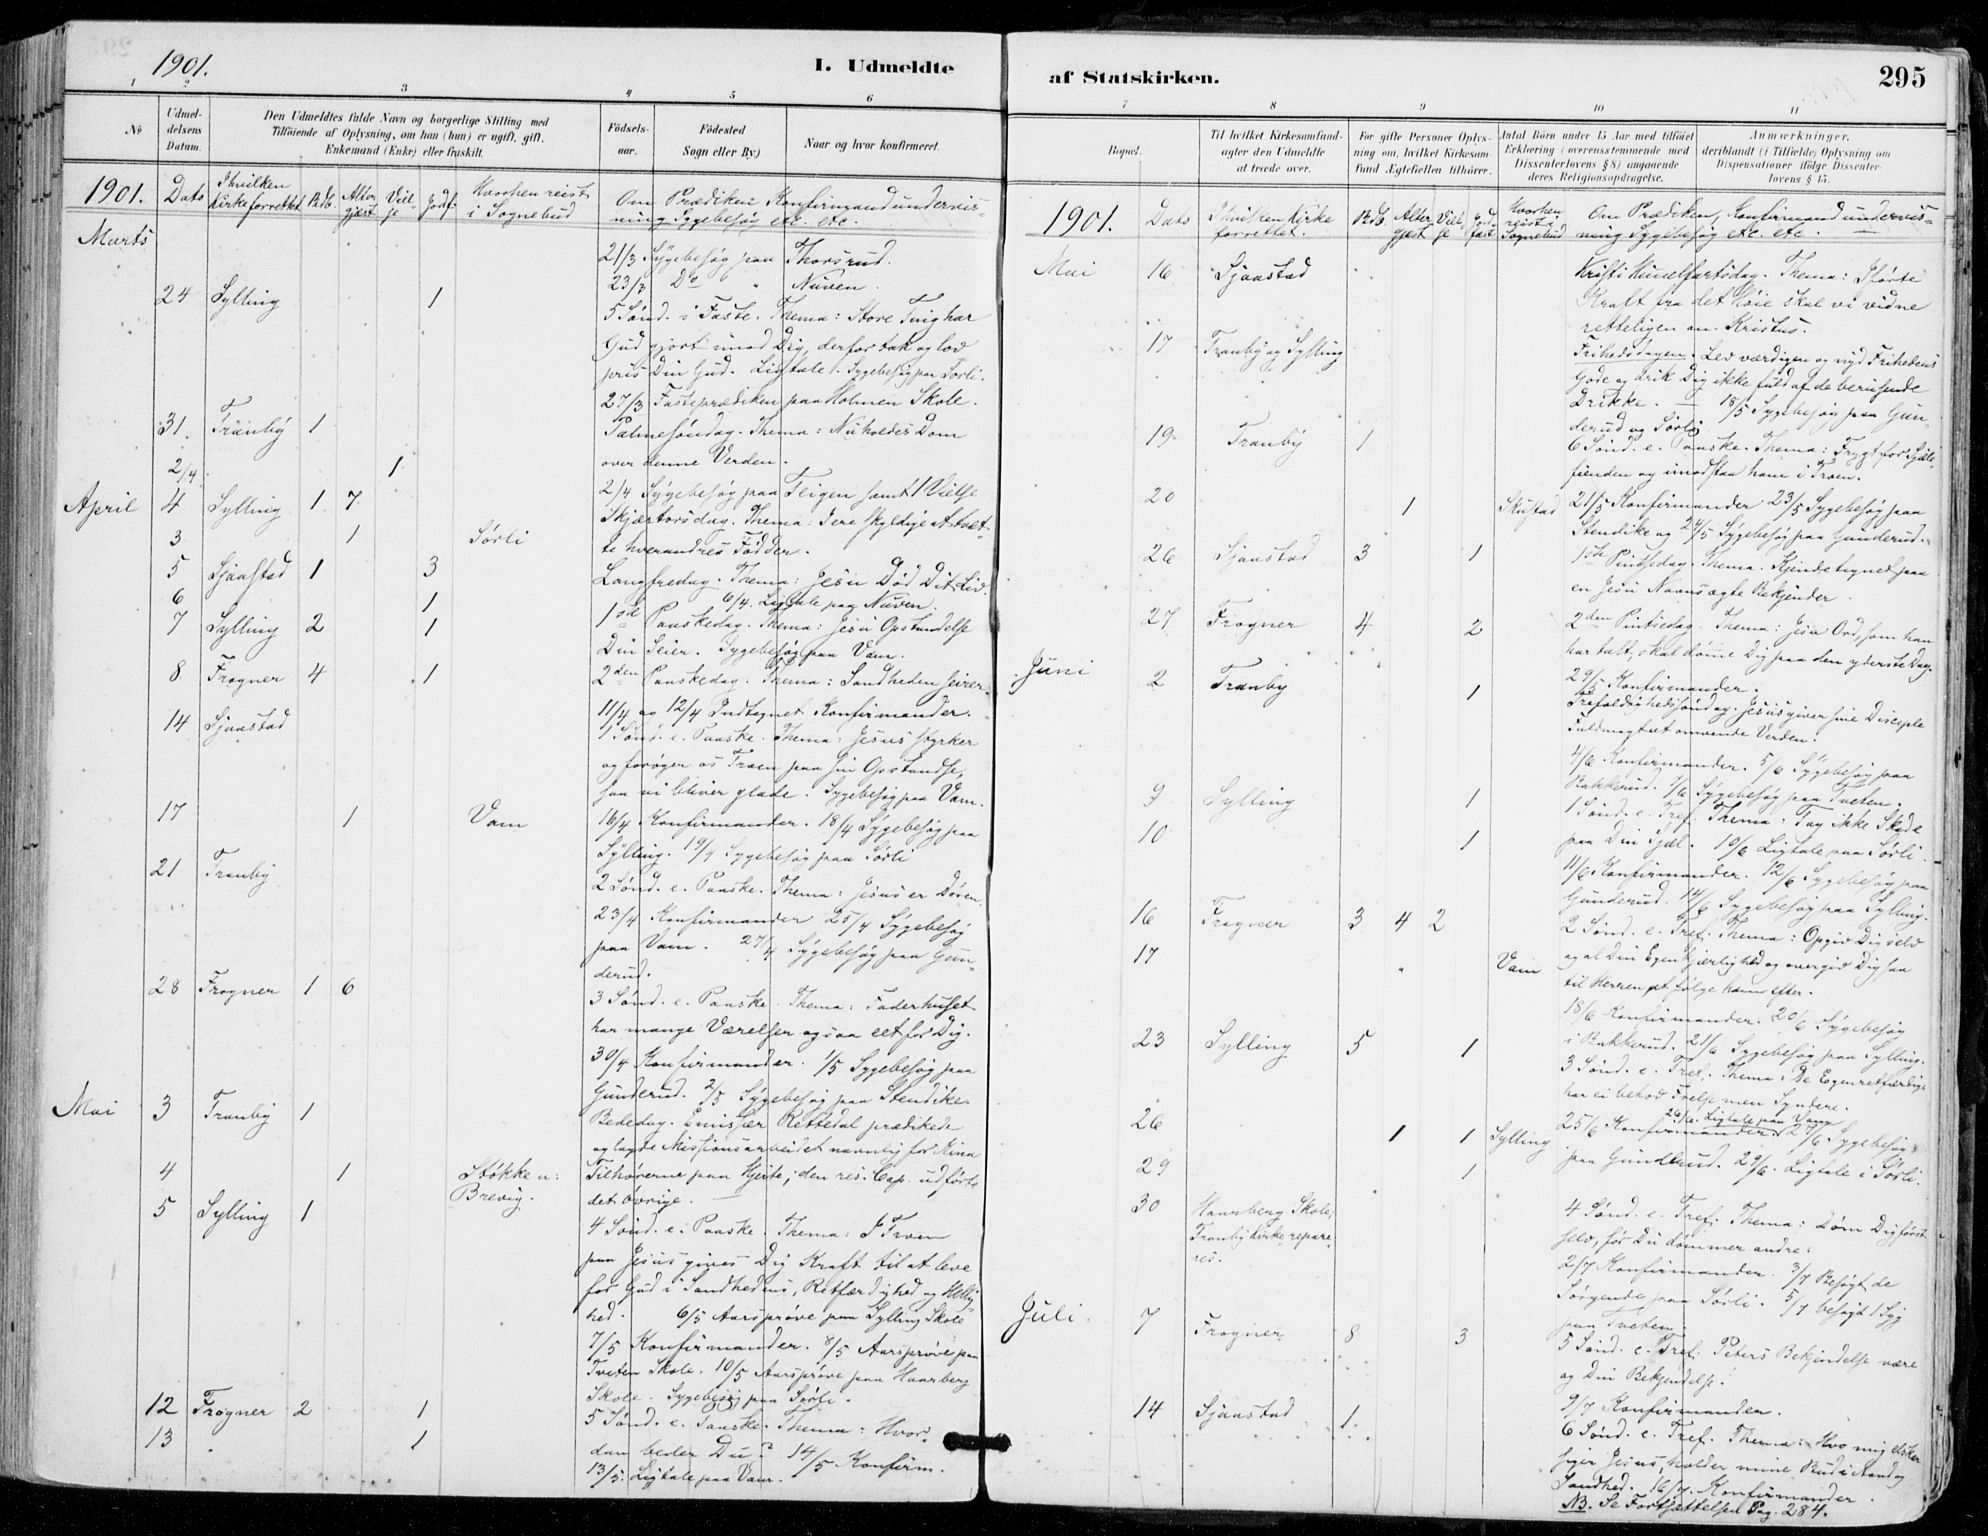 1901.
I. Udmeldte
1
2
3
4
5
6
No
Udmel-
delsens
Datum.
Den Udmeldtes fulde Navn og borgerlige Stilling med
Tilføiende af Oplysning, om han (hun) er ugift, gift,
Enkemand (Enke) eller fraskilt.
Fødsels-
aar.
Födested
Sogn eller By.)
Naar og hvor konfirmeret.
1901. Dato I hvilken Kirke forrettet Altergjest Vielse Jordf. Hvorhen reist i Sognebud Om Prædiken Konfirmandundervis-
ning Sygebesøg etc. etc.
Marts
21/3 Sygebesøg paa Thorsrud.
23/3 Do " Nuven.
24 Sylling 1 5 Sønd. i Faste. Thema: Store Ting har
Gud gjort imod Dig, derfor tak og lov
pris Din Gud. Ligtale. Sygebesøg paa Sørli.
27/3 Fasteprædiken paa Holmen Skole.
31. Tranby 1 Palmesøndag. Thema: Nu holdes Dom
over denne Verden.
2/4 1 2/4 Sygebesøg paa Teigen samt 1 Vielse
April 4 Sylling 1. 7. Skjærtorsdag. Thema: I ere skyldige at tvæt-
3 1 Sørli te hverandres Fødder.
5 Sjaastad 1 3 Langfredag. Thema: Jesu Død Dit Liv.
6 1 6/4. Ligtale paa Nuven.
7 Sylling 2 1 1ste Paaskedag. Thema: Jesu Opstandelse
Din Seier. Sygebesøg paa Vam.
8 Frogner 4 1 2den Paaskedag. Thema: Sandheden seirer.
11/4 og 12/4 Indtegnet Konfirmander.
14 Sjaastad 1 Sønd. e. Paaske. Thema: Jesus styrker
og forøger os Troen paa sin Opstandelse,
saa vi bliver glade. Sygebesøg paa Vam.
17 1 Vam 16/4 Konfirmander. 18/4 Sygebesøg paa
Sylling. 19/4 Sygebesøg paa Sørli
21 Tranby 2 Sønd. e. Paaske. Thema: Jesus er Døren.
23/4 Konfirmander 25/4 Sygebesøg
paa Vam. 27/4 Sygebesøg paa Gun-
derud.
28 Frogner 1 6 3 Sønd. e. Paaske. Thema: Faderhuset
har mange Værelser ogsaa eet for Dig.
30/4 Konfirmander. 1/5 Sygebesøg paa
Gunderud. 2/5 Sygebesøg paa Stendike.
Mai 3 Tranby 1 Bededag. Emissær Rettedal prædikede
og lagde Missionsarbeidet navnlig for Kina
4 1 Støkke n: Brevig. Tilhørerne paa Hjerte; den res. Cap. udførte
det øvrige.
5 Sylling 1 4 Sønd. e. Paaske. Thema: I Troen
paa Jesus gives Dig Kraft til at leve
for Gud i Sandhedens, Retfærdighed og Hellig-
hed. 6/5 Aarsprøve paa Sylling Skole
7/5 Konfirmander. 8/5 Aarsprøve paa
Tveten Skole. 10/5 Aarsprøve paa Haarberg
Skole. Sygebesøg paa Sørli.
12 Frogner 2 1 5 Sønd. e. Paaske. Thema: Hvor-
13 1 dan beder Du? 14/5 Konfirm.
13/5. Ligtale paa Vam.
af Statskirken.
295
7
8
9
10
11
Bopæl.
Til hvilket Kirkesamfund
agter den Udmeldte
at træde over.
For gifte Personer Oplys-
ning om, hvilket Kirkesam-
fund Ægtefællen tilhører.
Antal Børn under 15 Aar med tilføiet
Erklæring (overensstemmende med
Dissenterlovens § 8) angaaende
deres Religionsopdragelse.
Anmærkninger,
deriblandt (i Tilfælde) Oplysning om
Dispensationer ifølge Dissenter-
lovens § 15.
1901. Dato I hvilken Kirke forrettet. Altergjest Vielse Jordfæst Hvorhen reist i Sognebud Om Prædiken, Konfirmandundervis-
ning Sygebesøg etc. etc.
Mai 16 Sjaastad Kristi Himmelfartsdag. Thema: Iførte
Kraft fra det Høie skal vi vidne
retteligen om Kristus.
17 Tranby og Sylling Frihedsdagen. Lev værdigen og nyd Frihedens
Gode og drik Dig ikke fuld af de berusende
Drikke. 18/5 Sygebesøg paa Gun-
derud og Sørli
19 Tranby 1 6 Sønd. e. Paaske. Thema: Frygt for Sjæle-
fienden og imodstaa ham i Troen.
20 1 Skustad 21/5 Konfirmander 23/5 Sygebesøg paa
Stendike og 24/5 Sygebesøg paa Gunderud.
26 Sjaastad 3 1 1ste Pintsedag. Thema. Kjendetegnet paa
en Jesu Navns ægte Bekjender.
27 Frogner 4 2 2den Pintsedag. Thema: Jesu Ord, som han
har talt, skal dømme Dig paa den yderste Dag.
29/5 Konfirmander.
Juni 2 Tranby 1 Trefoldighedssøndag. Jesus giver sine Disciple
Fuldmagt at omvende Verden.
4/6 Konfirmander. 5/6 Sygebesøg paa
Bakkerud. 7/6 Sygebesøg paa Tveten.
9 Sylling 1 1 Sønd. e. Tref. Thema: Tag ikke Skade
10 1 paa Din Sjæl. 10/6 Ligtale paa Sørli.
11/6 Konfirmander. 12/6 Sygebesøg paa
Gunderud. 14/6 Sygebesøg paa Sylling.
16 Frogner 3 4 2 2 Sønd. e. Tref. Thema: Opgiv Dig selv
17 " Vam og al Din Egenkjærlighed og overgiv Dig saa
til Herren at følge ham efter.
18/6 Konfirmander. 20/6 Sygebesøg
i Bakkerud. 21/6 Sygebesøg paa Sylling.
23 Sylling 5 1 3 Sønd. e. Tref. Thema: De Egenretfærdige
har ei behov Frelse men Syndere.
26/6. Ligtale paa Vam
26 1 1 Sylling 25/6 Konfirmander 27/6. Sygebesøg
29 1 paa Gunderud. 29/6. Ligtale i Sørli.
30 Haarberg Skole, 4 Sønd. e. Tref. Thema: Døm Dig først
Tranby Kirke repare- selv, før Du dømmer andre.
res. 2/7 Konfirmander. 3/7 Besøgt de
Sørgende paa Sørli. 5/7 besøgt 1 Syg
paa Tveten.
Juli. 7 Frogner 8 3 5 Sønd. e. Tref. Peters Bekjendelse være
og Din Bekjendelse.
9/7 Konfirmander.
14 Sjaastad 1. 6 Sønd. e. Tref. Thema: Hvo mig elsker
siger Jesus, holder mine Bud i Aand og
Sandhed. 16/7. Konfirmander.
NB. Se Fortsættelsen Pag. 284.